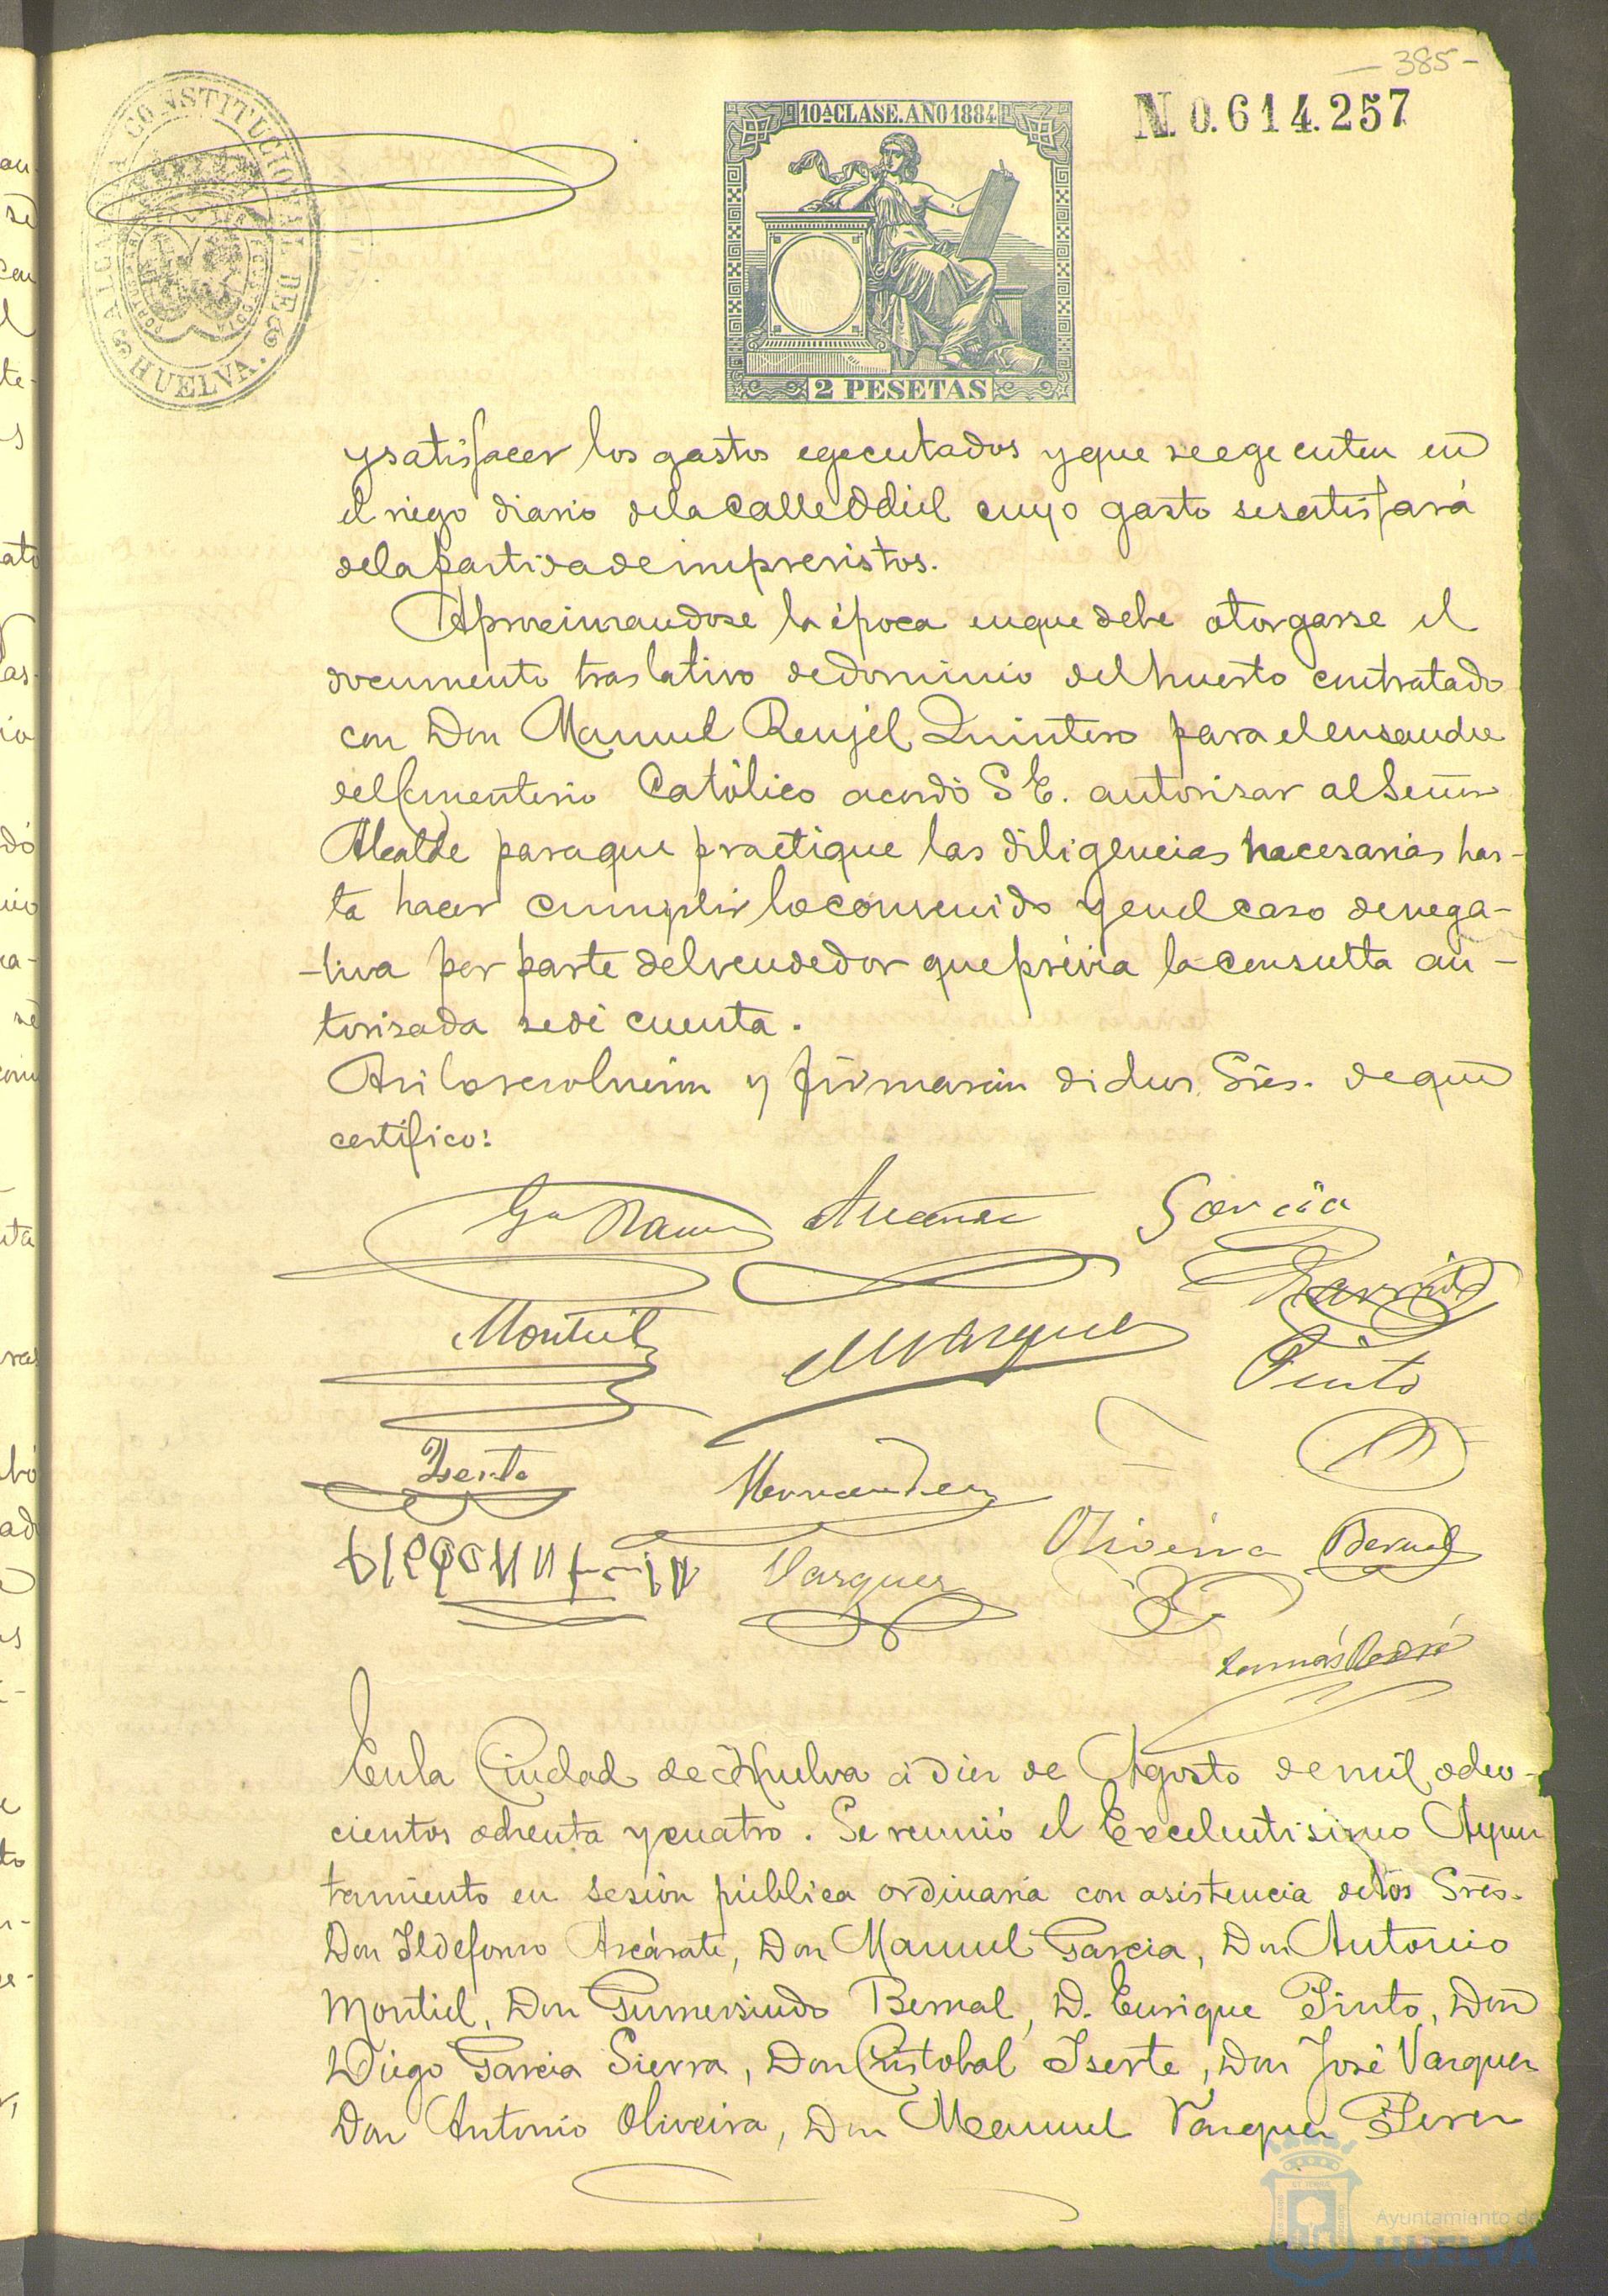 - 385 -
ALCALDIA CONSTITUCIONAL DE HUELVA.
10ª CLASE. AÑO 1884
N. 0.614.257
2 PESETAS
y satisfacer los gastos egecutados y que se egecuten en
el riego diario de la calle Odiel cuyo gasto se satisfará
de la partida de imprevistos.
Aproximandose la época en que debe otorgarse el
documento traslativo de dominio del huerto contratado
con Don Manuel Renjel Quintero para el ensanche
del Cementerio Católico acordó S E. autorisar al Señor
Alcalde para que practique las diligencias nacesarias has-
ta hacer cumplir lo convenido y en el caso de nega-
-tiva por parte del vendedor que prévia la consulta au-
torisada se dé cuenta.
Asi lo resolvieron y firmarán dichos Sres. de que
certifico:
Garcia
Montiel
Marquez
Pinto
Iserte
Hernandez
Oliveira Bernal
Vazquez
En la Ciudad de Huelva á diez de Agosto de mil ocho-
cientos ochenta y cuatro. Se reunió el Excelentisimo Ayun
tamiento en sesion pública ordinaria con asistencia de los Sres.
Don Ildefonso Azcárate, Don Manuel Garcia, Don Antonio
Montiel, Don Gumersindo Bernal, D. Enrique Pinto, Don
Diego Garcia Sierra, Don Cristobal Iserte, Don José Vazquez
Don Antonio Oliveira, Don Manuel Vazquez Perez
Ayuntamiento de
HUELVA